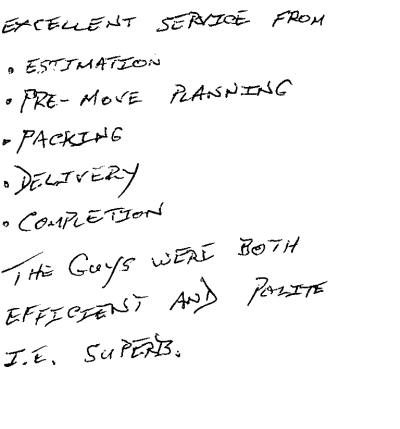 EXCELLENT SERVICE FROM
• ESTIMATION
• PRE-MOVE PLANNING
• PACKING
• DELIVERY
• COMPLETION
THE GUYS WERE BOTH
EFFICIENT AND POLITE
I.E. SUPERB.